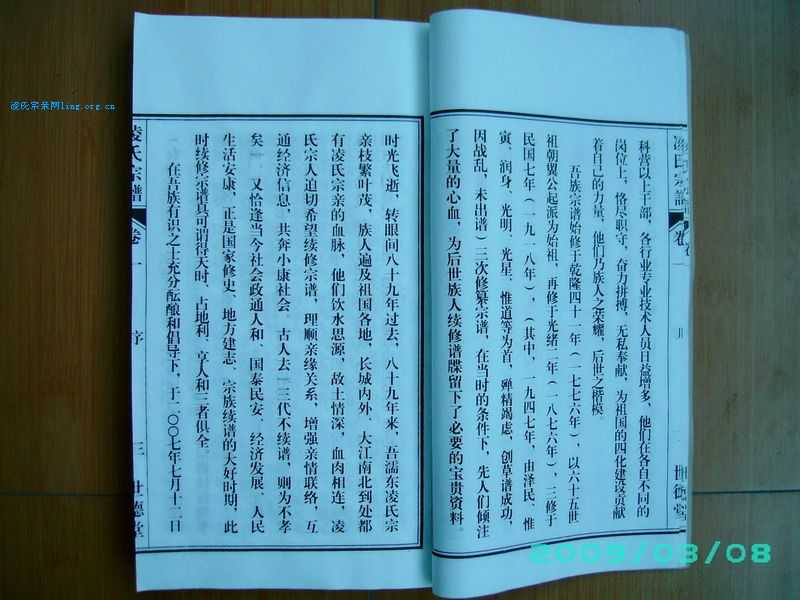 科营以上干部，各行业专业技术人员日益增多，他们在各自不同的
岗位上，恪尽职守，奋力拼搏，无私奉献，为祖国的四化建设贡献
着自己的力量，他们乃族人之荣耀，后世之楷模
吾族宗谱始修于乾隆四十一年（一七七六年），以六十五世
祖朝翼公起派为始祖，再修于光绪二年（一八七六年），三修于
民国七年（一九一八年），（其中，一九四七年，由泽民、惟
寅、润身、光明、光星、惟道等为首，殚精竭虑，创草谱成功，
因战乱，未出谱）三次修纂宗谱，在当时的条件下，先人们倾注
了大量的心血，为后世族人续修谱牒留下了必要的宝贵资料。
凌氏宗譜
卷一
序
三
世德堂
时光飞逝，转眼间八十九年过去，八十九年来，吾濡东凌氏宗
亲枝繁叶茂，族人遍及祖国各地，长城内外、大江南北到处都
有凌氏宗亲的血脉，他们饮水思源，故土情深，血肉相连，凌
氏宗人迫切希望续修宗谱，理顺亲缘关系，增强亲情联络，互
通经济信息，共奔小康社会。古人去 三代不续谱，则为不孝
矣 又恰逢当今社会政通人和、国泰民安、经济发展、人民
生活安康，正是国家修史、地方建志、宗族续谱的大好时期，此
时续修宗谱真可谓得天时、占地利、享人和三者俱全。
在吾族有识之士充分酝酿和倡导下，于二〇〇七年七月十二日
凌氏宗亲网ling.org.cn
2009/03/08